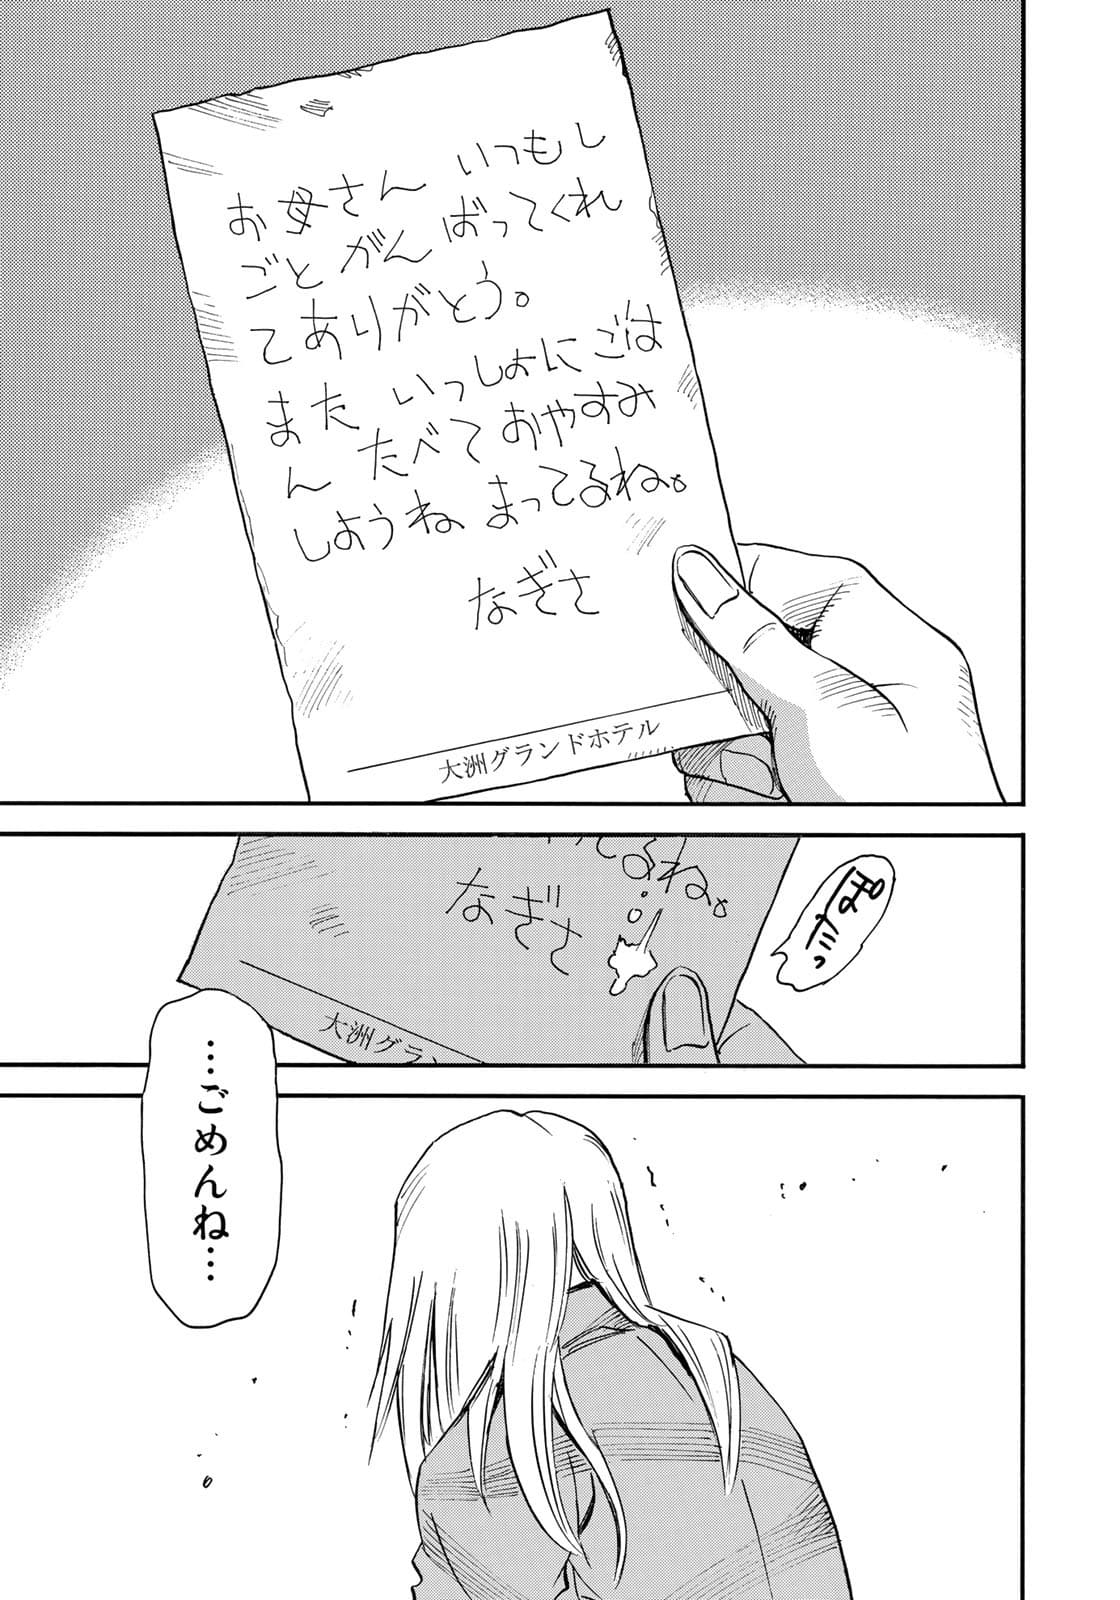 お母さん いつもし
ごと がんばってくれ
てありがとう。
また いっしょにごは
ん たべておやすみ
しようね まってるね。
なぎさ
大洲グランドホテル
てるね。
なぎさ
大洲グラン
…ごめんね…